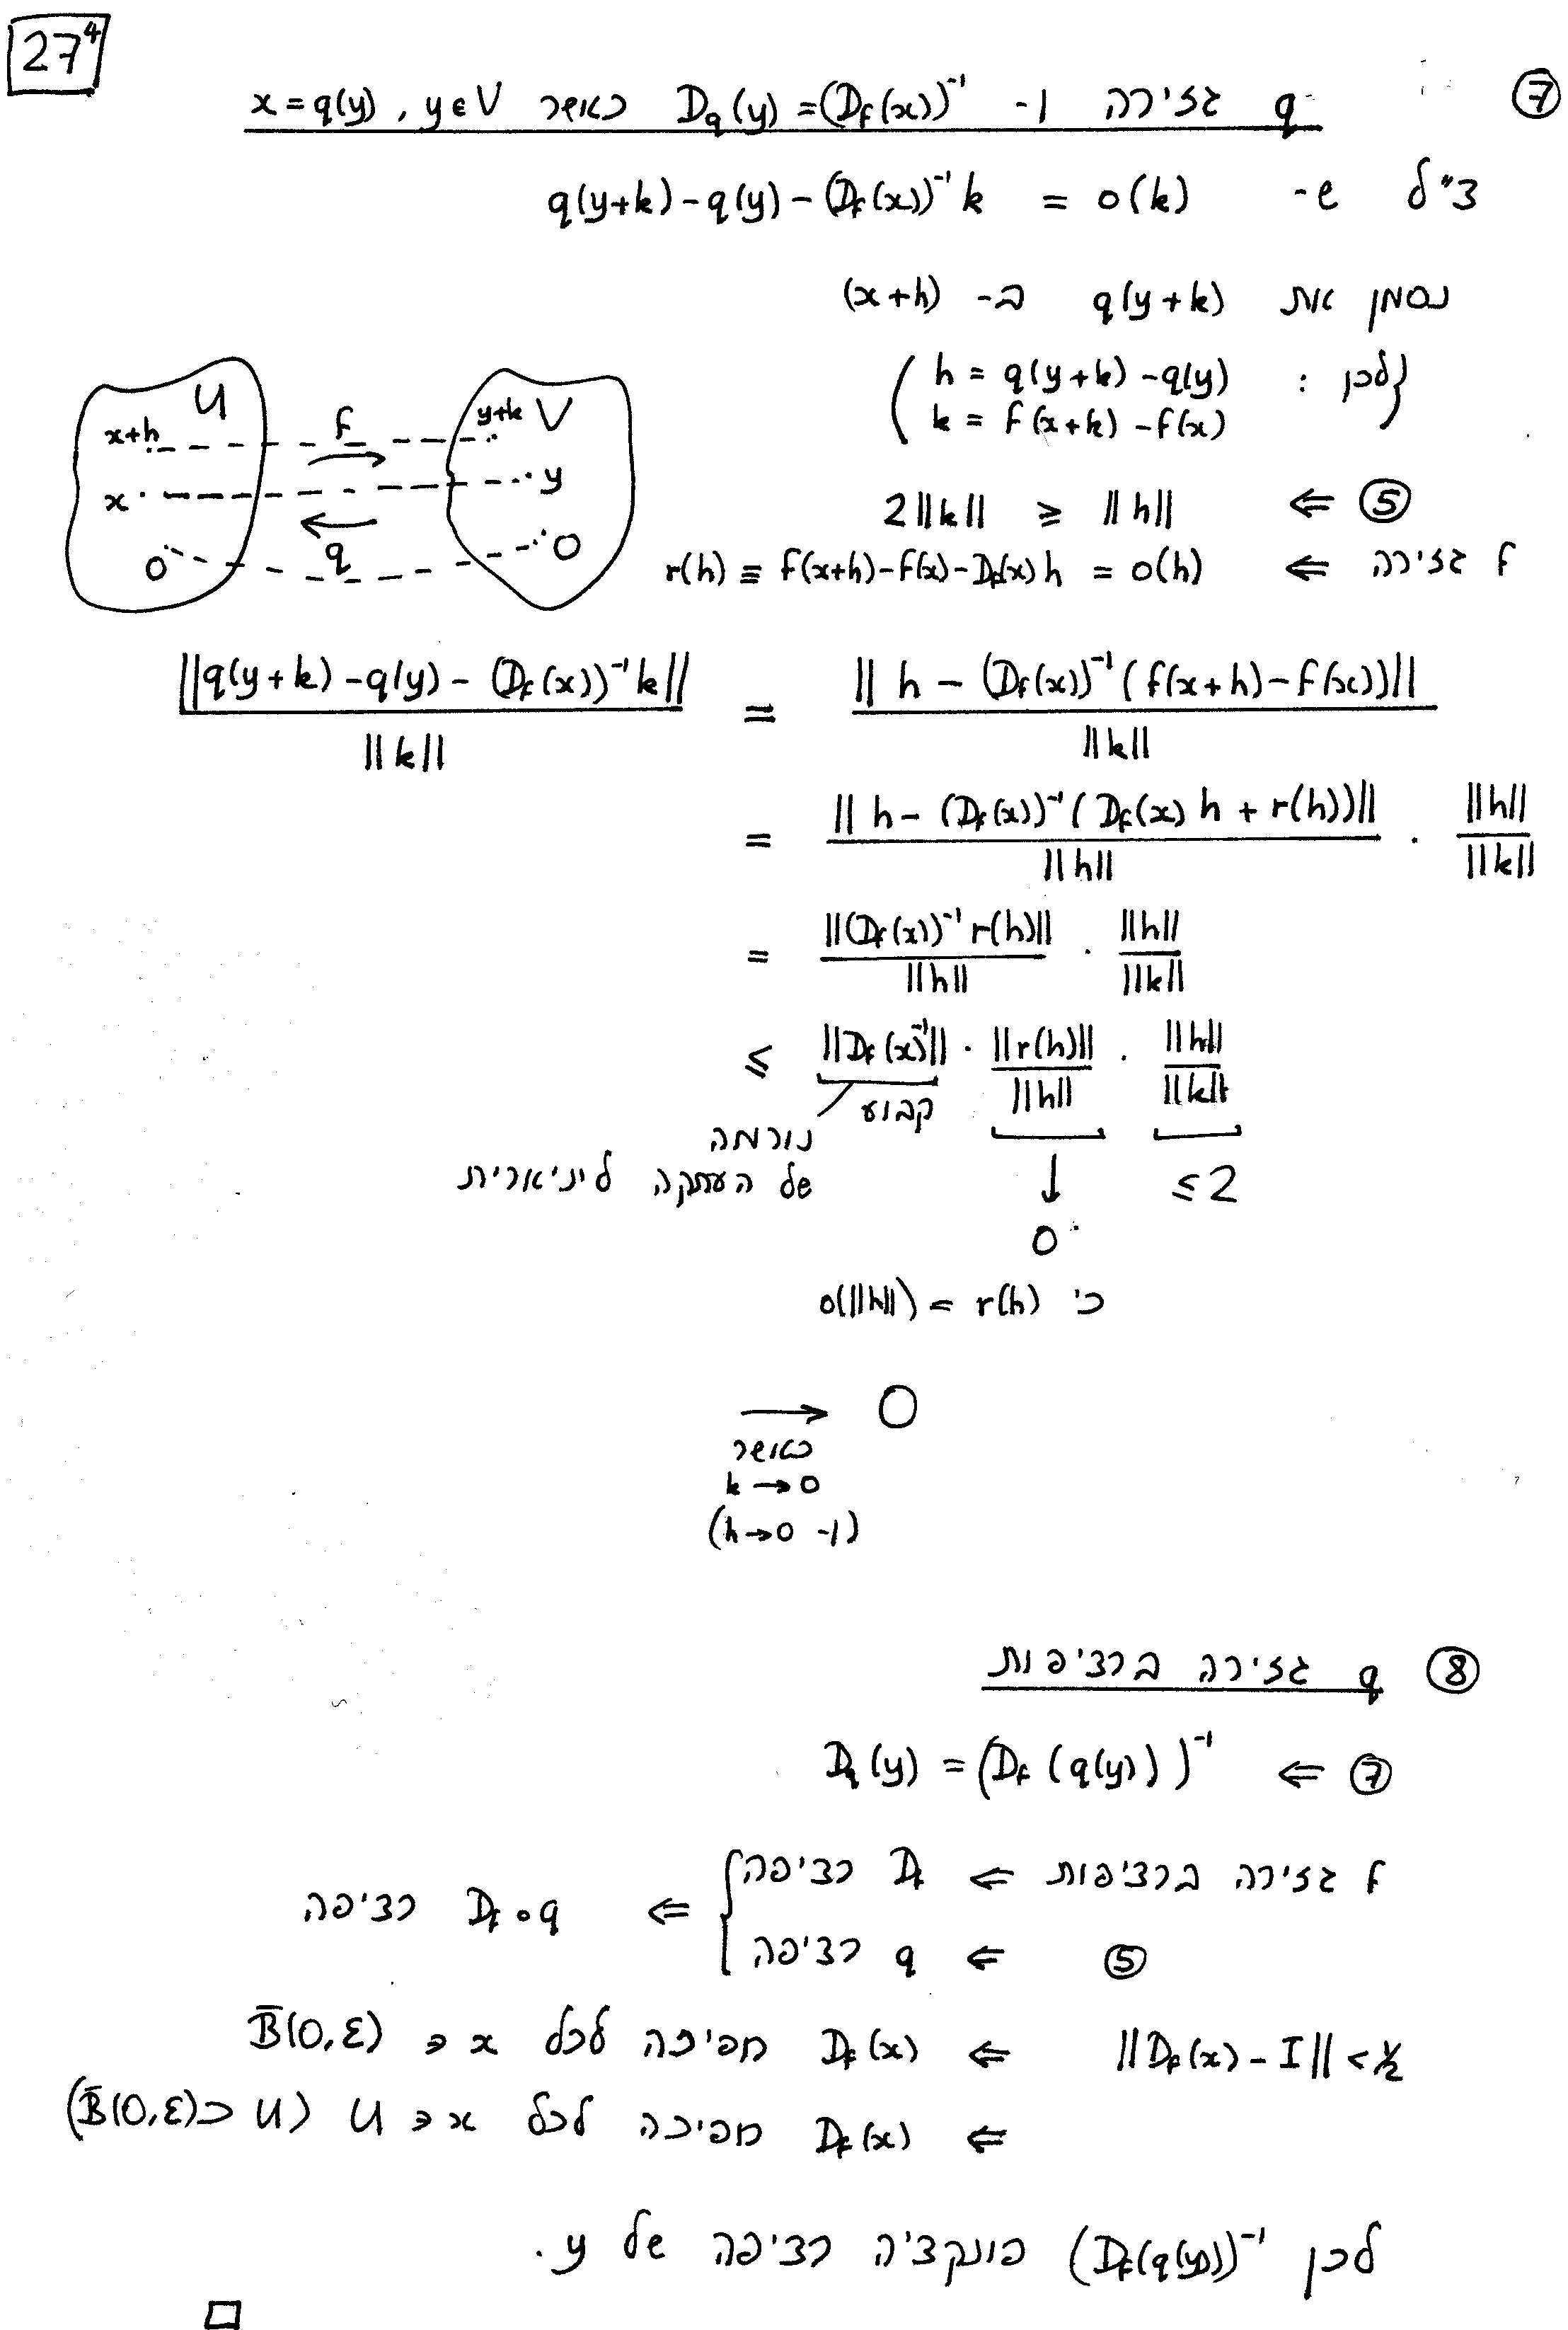 27⁴
⑦ g גזירה ו- D_g(y) = (D_f(x))⁻¹ כאשר x = g(y) , y ∈ V
צ"ל ש- g(y+k) - g(y) - (D_f(x))⁻¹ k = o(k)
נסמן את g(y+k) ב- (x+h)
(לכן : h = g(y+k) - g(y)
k = f(x+k) - f(x))
U V
x+h f y+k
x y
0 g 0
⑤ ⇒ 2||k|| ≥ ||h||
f גזירה ⇒ r(h) ≡ f(x+h) - f(x) - D_f(x) h = o(h)
||g(y+k) - g(y) - (D_f(x))⁻¹ k|| / ||k|| = || h - (D_f(x))⁻¹ ( f(x+h) - f(x))|| / ||k||
= || h - (D_f(x))⁻¹ ( D_f(x) h + r(h))|| / ||h|| · ||h|| / ||k||
= ||(D_f(x))⁻¹ r(h)|| / ||h|| · ||h|| / ||k||
≤ ||D_f(x)⁻¹|| · ||r(h)|| / ||h|| · ||h|| / ||k||
קבוע
נורמה
של העתקה ליניארית
↓ ≤ 2
0
כי r(h) = o(||h||)
→ 0
כאשר
k → 0
(ו- h → 0)
⑧ g גזירה ברציפות
⑦ ⇒ D_g(y) = (D_f ( g(y) ) )⁻¹
f גזירה ברציפות ⇒ D_f רציפה
⇒ D_f ∘ g רציפה
⑤ ⇒ g רציפה
||D_f(x) - I|| < ½ ⇒ D_f(x) הפיכה לכל x ∈ B̄(0,ε)
⇒ D_f(x) הפיכה לכל x ∈ U (U ⊂ B̄(0,ε))
לכן (D_f(g(y)))⁻¹ פונקציה רציפה של y .
□